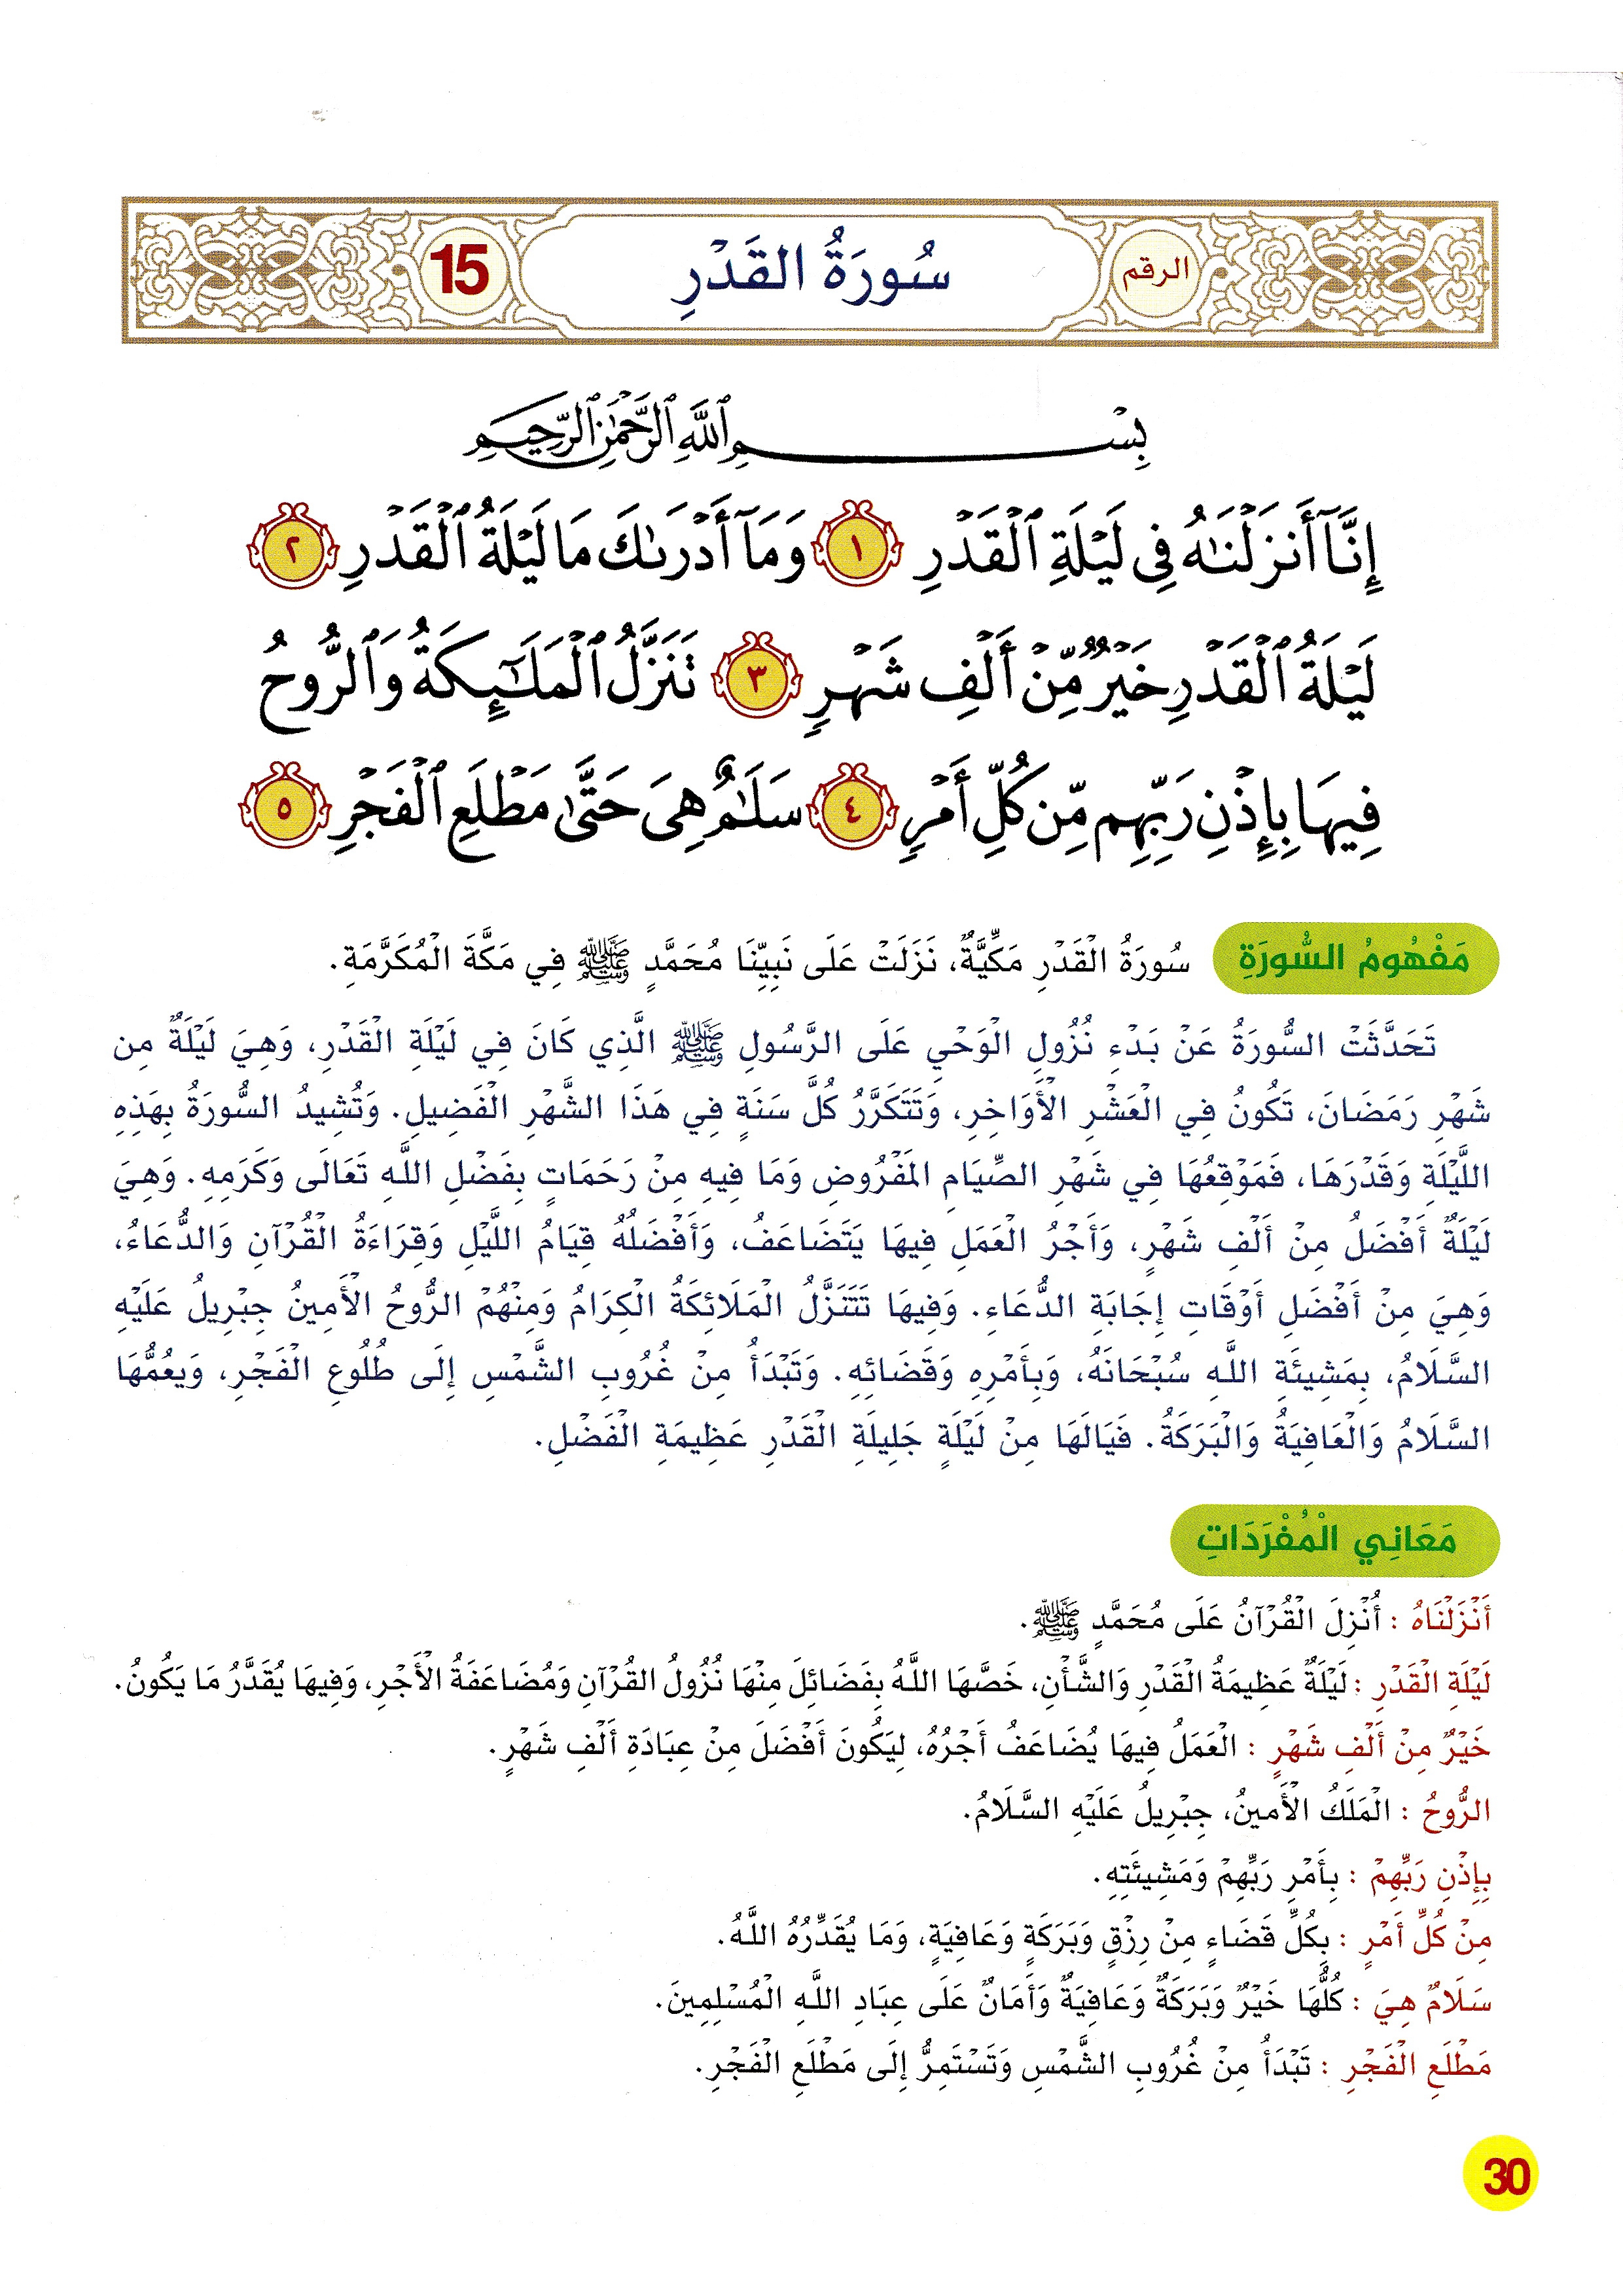 الرقم سُورَةُ القَدْرِ 15
بِسْمِ ٱللَّهِ ٱلرَّحْمَٰنِ ٱلرَّحِيمِ
إِنَّآ أَنزَلْنَٰهُ فِى لَيْلَةِ ٱلْقَدْرِ ١ وَمَآ أَدْرَىٰكَ مَا لَيْلَةُ ٱلْقَدْرِ ٢
لَيْلَةُ ٱلْقَدْرِ خَيْرٌ مِّنْ أَلْفِ شَهْرٍ ٣ تَنَزَّلُ ٱلْمَلَٰٓئِكَةُ وَٱلرُّوحُ
فِيهَا بِإِذْنِ رَبِّهِم مِّن كُلِّ أَمْرٍ ٤ سَلَٰمٌ هِىَ حَتَّىٰ مَطْلَعِ ٱلْفَجْرِ ٥
مَفْهُومُ السُّورَةِ سُورَةُ الْقَدْرِ مَكِّيَّةٌ، نَزَلَتْ عَلَى نَبِيِّنَا مُحَمَّدٍ ﷺ فِي مَكَّةَ الْمُكَرَّمَةِ.
تَحَدَّثَتْ السُّورَةُ عَنْ بَدْءِ نُزُولِ الْوَحْيِ عَلَى الرَّسُولِ ﷺ الَّذِي كَانَ فِي لَيْلَةِ الْقَدْرِ، وَهِيَ لَيْلَةٌ مِن
شَهْرِ رَمَضَانَ، تَكُونُ فِي الْعَشْرِ الْأَوَاخِرِ، وَتَتَكَرَّرُ كُلَّ سَنَةٍ فِي هَذَا الشَّهْرِ الْفَضِيلِ. وَتُشِيدُ السُّورَةُ بِهَذِهِ
اللَّيْلَةِ وَقَدْرَهَا، فَمَوْقِعُهَا فِي شَهْرِ الصِّيَامِ المَفْرُوضِ وَمَا فِيهِ مِنْ رَحَمَاتٍ بِفَضْلِ اللَّهِ تَعَالَى وَكَرَمِهِ. وَهِيَ
لَيْلَةٌ أَفْضَلُ مِنْ أَلْفِ شَهْرٍ، وَأَجْرُ الْعَمَلِ فِيهَا يَتَضَاعَفُ، وَأَفْضَلُهُ قِيَامُ اللَّيْلِ وَقِرَاءَةُ الْقُرْآنِ وَالدُّعَاءُ،
وَهِيَ مِنْ أَفْضَلِ أَوْقَاتِ إِجَابَةِ الدُّعَاءِ. وَفِيهَا تَتَنَزَّلُ الْمَلَائِكَةُ الْكِرَامُ وَمِنْهُمْ الرُّوحُ الْأَمِينُ جِبْرِيلُ عَلَيْهِ
السَّلَامُ، بِمَشِيئَةِ اللَّهِ سُبْحَانَهُ، وَبِأَمْرِهِ وَقَضَائِهِ. وَتَبْدَأُ مِنْ غُرُوبِ الشَّمْسِ إِلَى طُلُوعِ الْفَجْرِ، وَيعُمُّهَا
السَّلَامُ وَالْعَافِيَةُ وَالْبَرَكَةُ. فَيَالَهَا مِنْ لَيْلَةٍ جَلِيلَةِ الْقَدْرِ عَظِيمَةِ الْفَضْلِ.
مَعَانِي الْمُفْرَدَاتِ
أَنْزَلْنَاهُ : أُنْزِلَ الْقُرْآنُ عَلَى مُحَمَّدٍ ﷺ.
لَيْلَةِ الْقَدْرِ : لَيْلَةٌ عَظِيمَةُ الْقَدْرِ وَالشَّأْنِ، خَصَّهَا اللَّهُ بِفَضَائِلَ مِنْهَا نُزُولُ الْقُرْآنِ وَمُضَاعَفَةُ الْأَجْرِ، وَفِيهَا يُقَدَّرُ مَا يَكُونُ.
خَيْرٌ مِنْ أَلْفِ شَهْرٍ : الْعَمَلُ فِيهَا يُضَاعَفُ أَجْرُهُ، لِيَكُونَ أَفْضَلَ مِنْ عِبَادَةِ أَلْفِ شَهْرٍ.
الرُّوحُ : الْمَلَكُ الْأَمِينُ، جِبْرِيلُ عَلَيْهِ السَّلَامُ.
بِإِذْنِ رَبِّهِمْ : بِأَمْرِ رَبِّهِمْ وَمَشِيئَتِهِ.
مِنْ كُلِّ أَمْرٍ : بِكُلِّ قَضَاءٍ مِنْ رِزْقٍ وَبَرَكَةٍ وَعَافِيَةٍ، وَمَا يُقَدِّرُهُ اللَّهُ.
سَلَامٌ هِيَ : كُلُّهَا خَيْرٌ وَبَرَكَةٌ وَعَافِيَةٌ وَأَمَانٌ عَلَى عِبَادِ اللَّهِ الْمُسْلِمِينَ.
مَطْلَعِ الْفَجْرِ : تَبْدَأُ مِنْ غُرُوبِ الشَّمْسِ وَتَسْتَمِرُّ إِلَى مَطْلَعِ الْفَجْرِ.
30